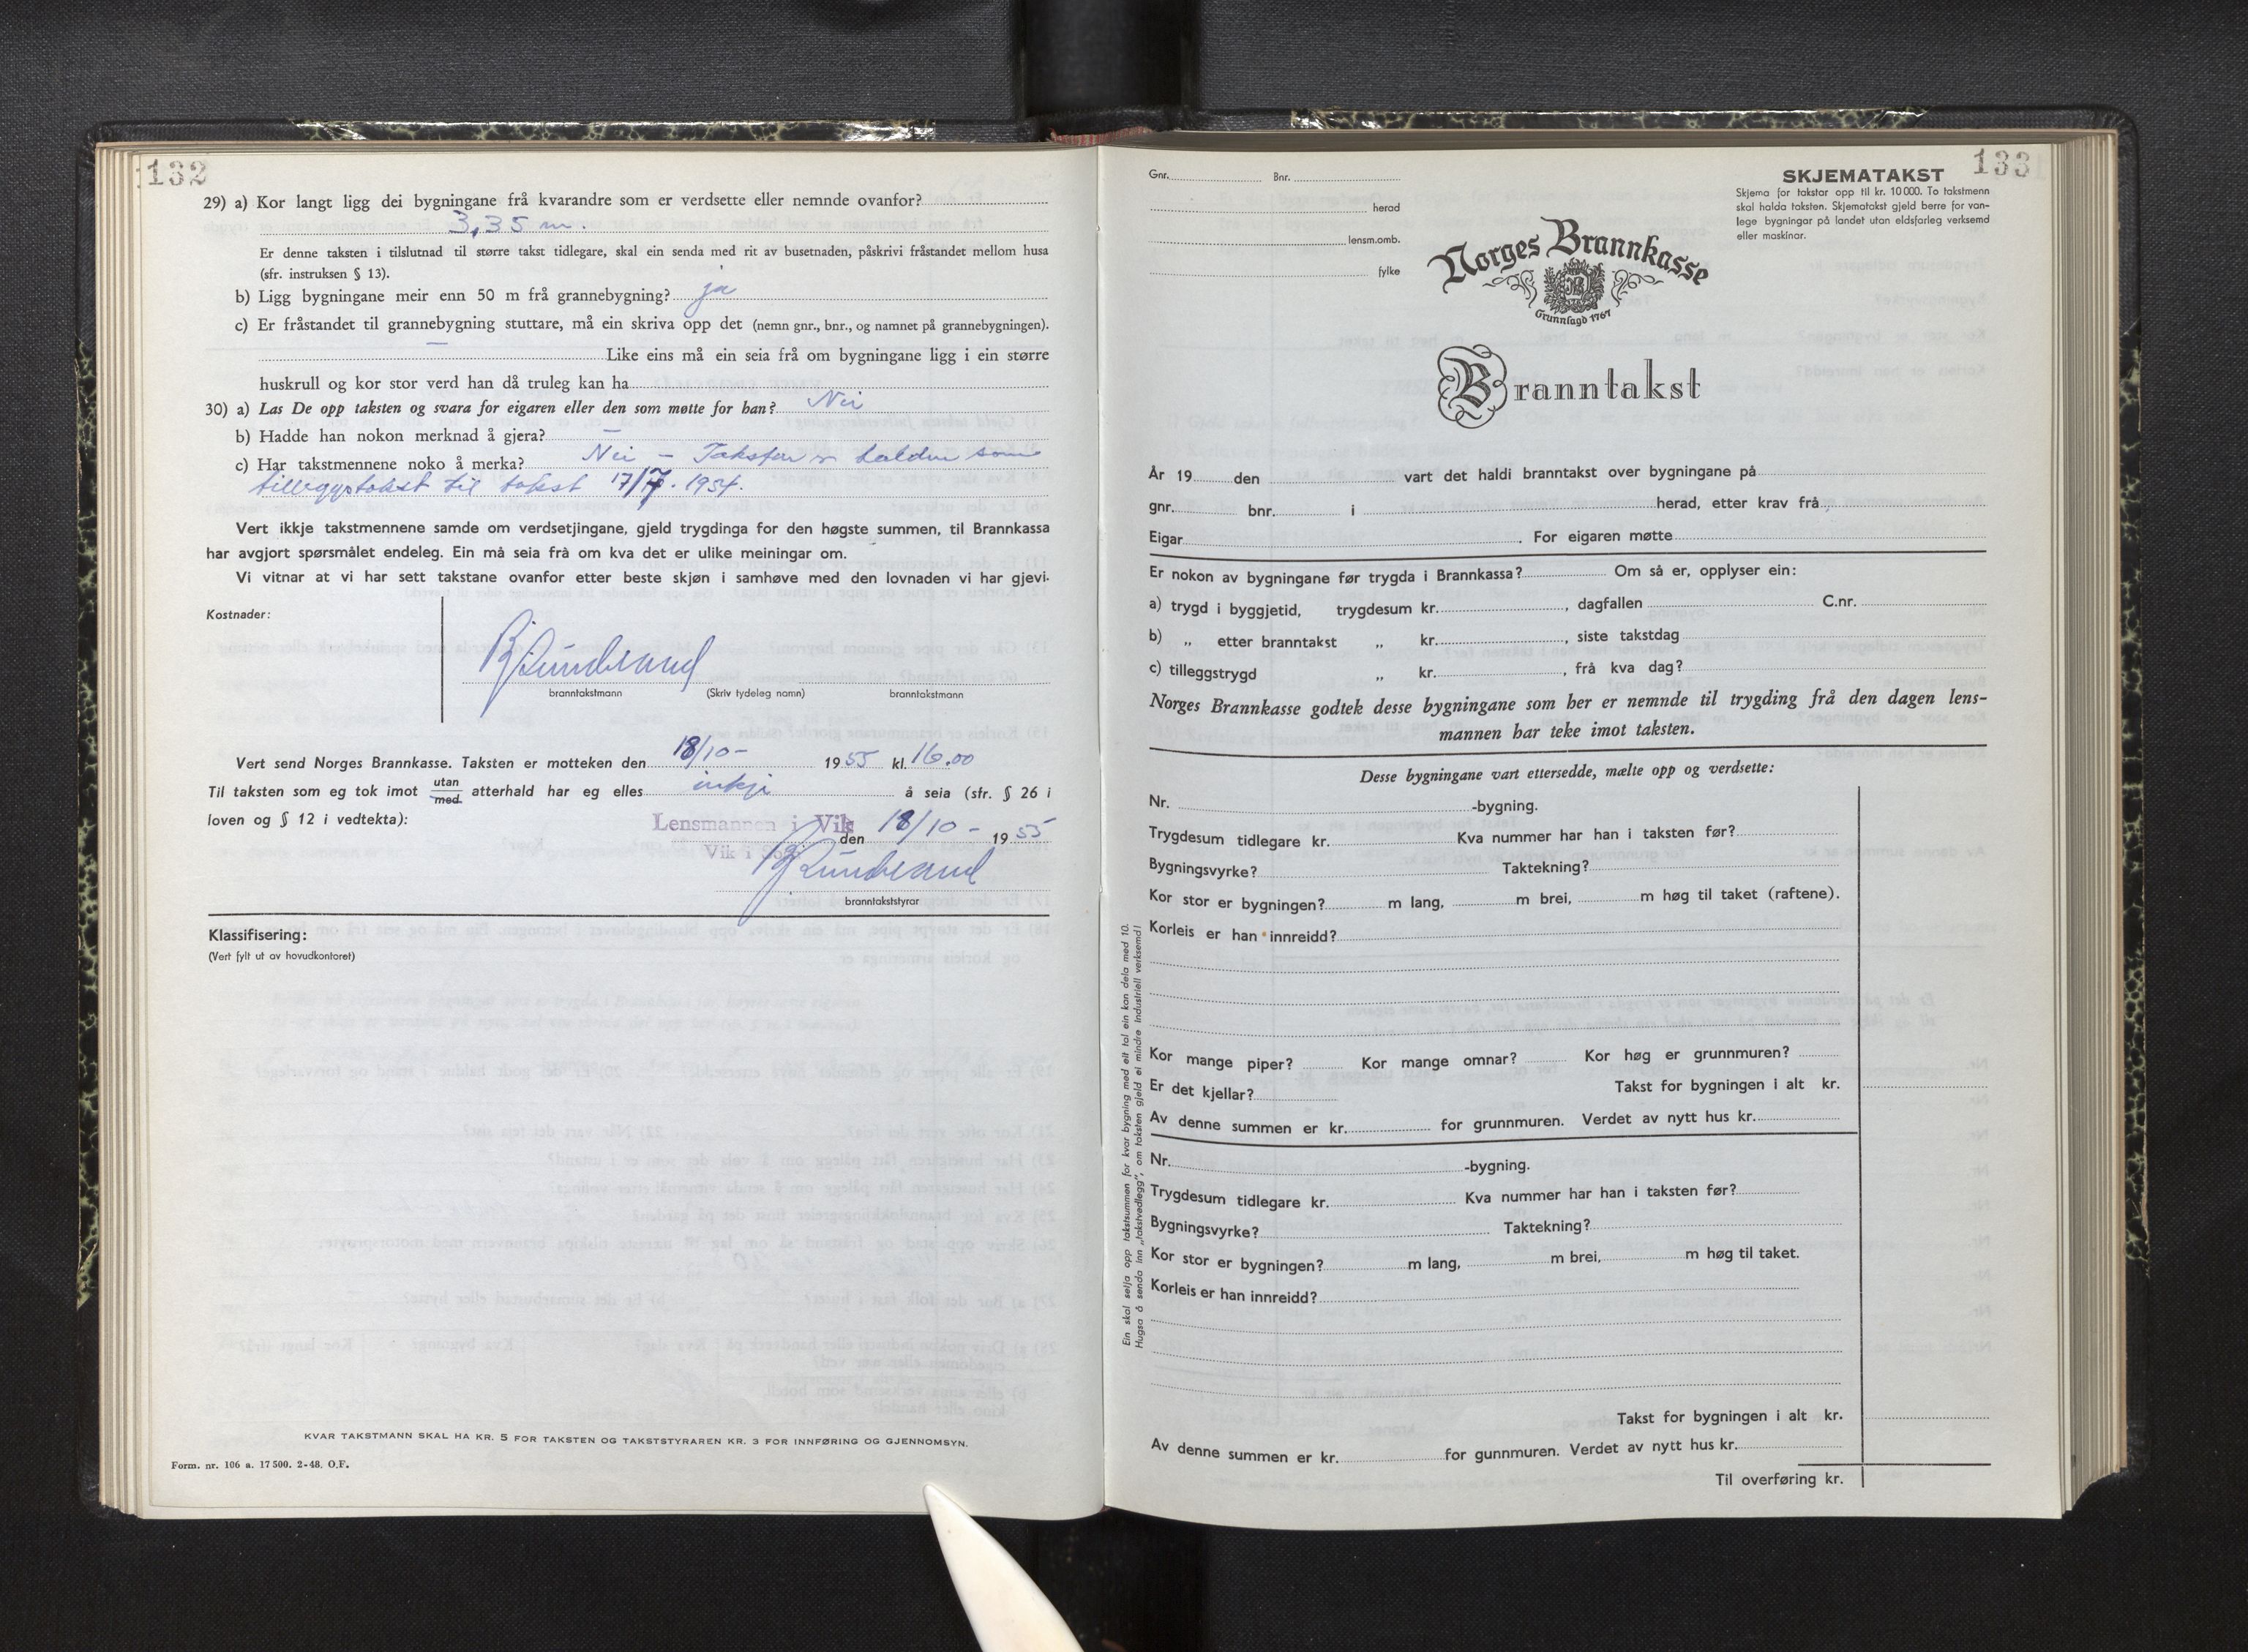 132
29) a) Kor langt ligg dei bygningane frå kvarandre som er verdsette eller nemnde ovanfor?
3,35 m.
Er denne taksten i tilslutnad til større takst tidlegare, skal ein senda med rit av busetnaden, påskrivi fråstandet mellom husa
(sfr. instruksen § 13).
b) Ligg bygningane meir enn 50 m frå grannebygning? ja
c) Er fråstandet til grannebygning stuttare, må ein skriva opp det (nemn gnr., bnr., og namnet på grannebygningen).
— Like eins må ein seia frå om bygningane ligg i ein større
huskrull og kor stor verd han då truleg kan ha
30) a) Las De opp taksten og svara for eigaren eller den som møtte for han? Nei
b) Hadde han nokon merknad å gjera? —
c) Har takstmennene noko å merka? Nei – Taksten er halden som
tilleggstakst til takst 17/7. 1954.
Vert ikkje takstmennene samde om verdsetjingane, gjeld trygdinga for den høgste summen, til Brannkassa
har avgjort spørsmålet endeleg. Ein må seia frå om kva det er ulike meiningar om.
Vi vitnar at vi har sett takstane ovanfor etter beste skjøn i samhøve med den lovnaden vi har gjevi.
Kostnader:
branntakstmann (Skriv tydeleg namn) branntakstmann
Vert send Norges Brannkasse. Taksten er motteken den 18/10– 1955 kl. 16.00
Til taksten som eg tok imot utan/med atterhald har eg elles inkje å seia (sfr. § 26 i
loven og § 12 i vedtekta):
Lensmannen i Vik den 18/10 – 1955
Vik i Sogn
branntakststyrar
Klassifisering:
(Vert fylt ut av hovudkontoret)
KVAR TAKSTMANN SKAL HA KR. 5 FOR TAKSTEN OG TAKSTSTYRAREN KR. 3 FOR INNFØRING OG GJENNOMSYN.
Form. nr. 106 a. 17 500. 2-48. O.F.
133
Gnr. Bnr.
herad
lensm.omb.
fylke
SKJEMATAKST
Skjema for takstar opp til kr. 10 000. To takstmenn
skal halda taksten. Skjematakst gjeld berre for van-
lege bygningar på landet utan eldsfarleg verksemd
eller maskinar.
Norges Brannkasse
Grunnlagd 1767
Branntakst
År 19 den vart det haldi branntakst over bygningane på
gnr. bnr. i herad, etter krav frå
Eigar . For eigaren møtte
Er nokon av bygningane før trygda i Brannkassa? Om så er, opplyser ein:
a) trygd i byggjetid, trygdesum kr. , dagfallen C.nr.
b) „ etter branntakst „ kr. , siste takstdag
c) tilleggstrygd „ kr. , frå kva dag?
Norges Brannkasse godtek desse bygningane som her er nemnde til trygding frå den dagen lens-
mannen har teke imot taksten.
Desse bygningane vart ettersedde, mælte opp og verdsette:
Nr. -bygning.
Trygdesum tidlegare kr. Kva nummer har han i taksten før?
Bygningsvyrke? Taktekning?
Kor stor er bygningen? m lang, m brei, m høg til taket (raftene).
Korleis er han innreidd?
Kor mange piper? Kor mange omnar? Kor høg er grunnmuren?
Er det kjellar? Takst for bygningen i alt kr.
Av denne summen er kr. for grunnmuren. Verdet av nytt hus kr.
Nr. -bygning.
Trygdesum tidlegare kr. Kva nummer har han i taksten før?
Bygningsvyrke? Taktekning?
Kor stor er bygningen? m lang, m brei, m høg til taket.
Korleis er han innreidd?
Takst for bygningen i alt kr.
Av denne summen er kr. for gunnmuren. Verdet av nytt hus kr.
Til overføring kr.
Ein skal setja opp takstsummen for kvar bygning med eit tal ein kan dela med 10.
Hugsa å senda inn „takstvedlegg", om taksten gjeld ei mindre industriell verksemd!